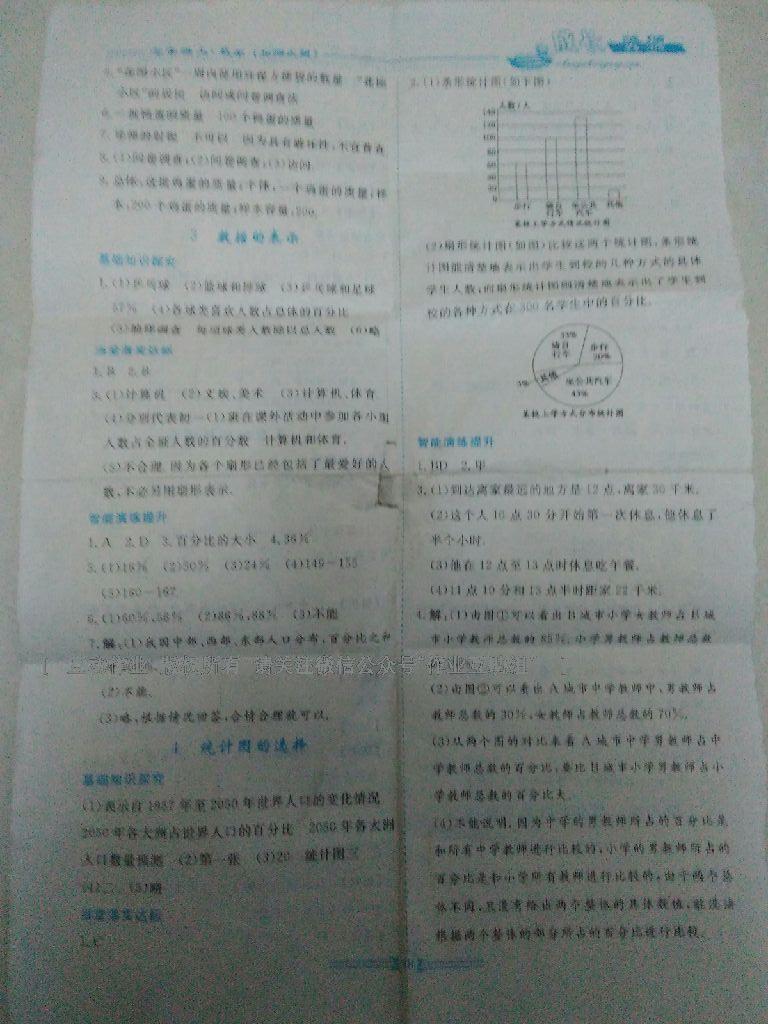 七年级上·数学(北师大版)
成长
5."花园小区"一周内使用环保方便袋的数量 "花园
小区"的居民 访问或问卷调查法
6.一批鸭蛋的质量 100个鸭蛋的质量
不可以 因为具有破坏性,不宜普查
8.(1)问卷调查;(2)问卷调查;(3)访问.
9.总体:这批鸡蛋的质量;个体:一个鸡蛋的质量;样
本:200个鸡蛋的质量;样本容量:200.
3 数据的表示
基础知识探究
1.(1)乒乓球 (2)篮球和排球 (3)乒乓球和足球
57% (4)各球类喜欢人数占总体的百分比
(5)抽样调查 每项球类人数除以总人数 (6)略
随堂落实达标
1.B 2.B
3.(1)计算机 (2)文娱、美术 (3)计算机、体育
(4)分别代表初一(1)班在课外活动中参加各小组
人数占全班人数的百分数 计算机和体育.
(5)不合理.因为各个扇形已经包括了最爱好的人
数,不必另用扇形表示.
智能演练提升
1.A 2.D 3.百分比的大小 4.36%
5.(1)16% (2)30% (3)24% (4)149~155
(5)160~167
6.(1)60%,56% (2)86%,88% (3)不能
7.解:(1)我国中部、西部、东部人口分布,百分比之和
(2)不能.
(3)略,根据情况回答,合情合理就可以.
4 统计图的选择
基础知识探究
(1)表示自1957年至2050年世界人口的变化情况
2050年各大洲占世界人口的百分比 2050年各大洲
人口数量预测 (2)第一张 (3)20 统计图三
(5)略
随堂落实达标
1.C
2.(1)条形统计图(如下图)
人数/人
140
120
100
80
60
40
20
0
步行 骑自行车 坐公共汽车 其他
某校上学方式情况统计图
(2)扇形统计图(如图)比较这两个统计图,条形统
计图能清楚地表示出学生到校的几种方式的具体
学生人数,而扇形统计图则清楚地表示出了学生到
校的各种方式在300名学生中的百分比.
33%
骑自行车
步行
20%
5%
其他
坐公共汽车
某校上学方式分布统计图
智能演练提升
1.BD 2.甲
3.(1)到达离家最远的地方是12点,离家30千米.
(2)这个人10点30分开始第一次休息,他休息了
半个小时.
(3)他在12点至13点时休息吃午餐.
(4)11点10分和13点半时距家22千米.
4.解:(1)由图①可以看出B城市小学女教师占B城
市小学教师总数的85%,小学男教师占教师总数
(2)由图②可以看出A城市中学教师中,男教师占
教师总数的30%,女教师占教师总数的70%.
(3)从两个图的对比来看A城市中学男教师占中
学教师总数的百分比,要比B城市小学男教师占小
学教师总数的百分比大.
(4)不能说明.因为中学的男教师所占的百分比是
和所有中学教师进行比较的,小学的男教师所占的
百分比是和小学所有教师进行比较的,由于两个总
体不同,且没有给出两个整体的具体数值,故没法
根据两个整体的部分所占的百分比进行比较.
[ 互动作业 版权所有 请关注微信公众号"作业互助组" ]